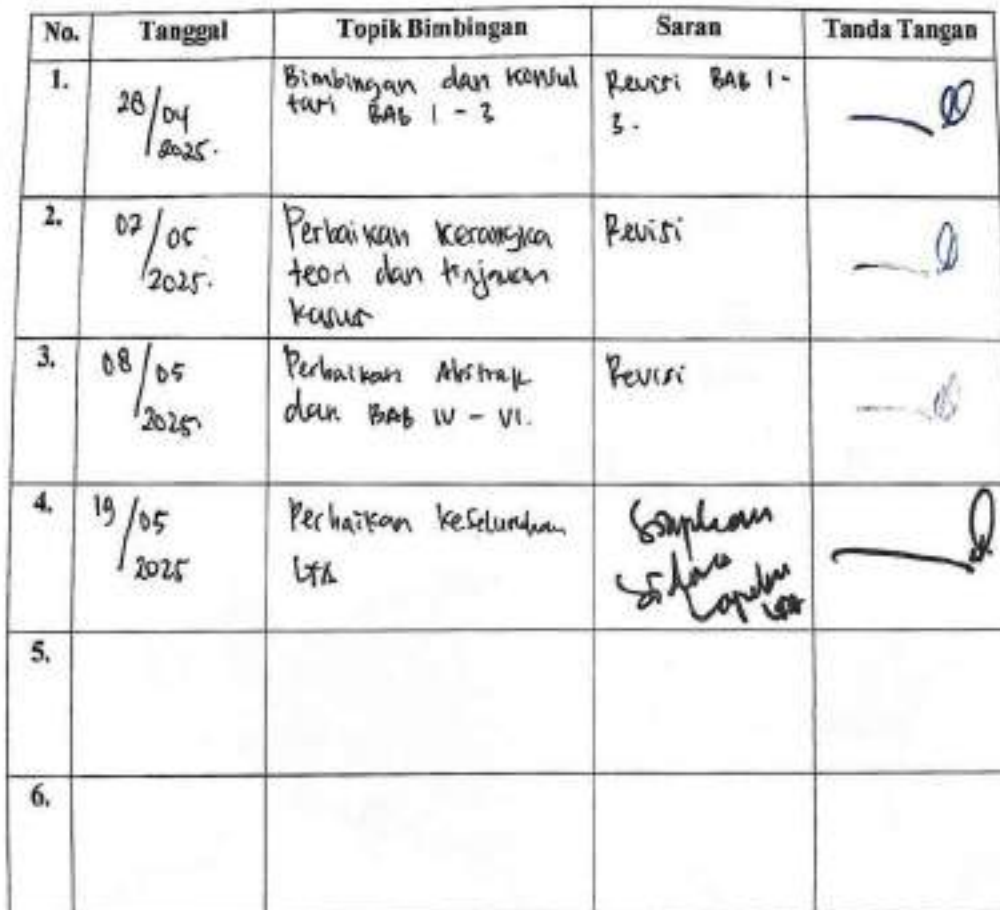 No. Tanggal Topik Bimbingan Saran Tanda Tangan
1.
28/04
2025.
Bimbingan dan konsul
tasi BAB 1 - 3
Revisi BAB 1 -
3.
2.
02/05
2025.
Perbaikan kerangka
teori dan tinjauan
kasus
Revisi
3.
08/05
2025
Perbaikan Abstrak
dan BAB IV - VI.
Revisi
4.
19/05
2025
Perbaikan keseluruhan
LTA
Siapkan
Sidang
Lapran
LTA
5.
6.